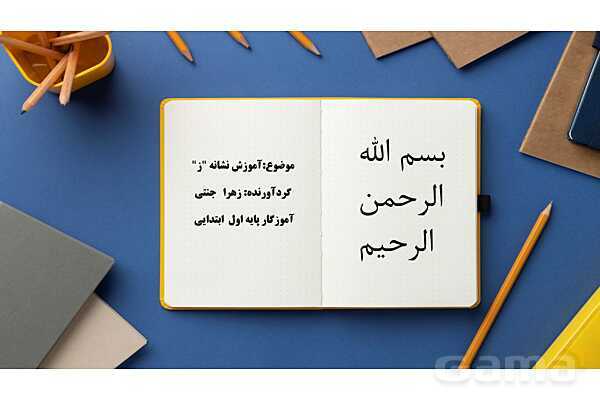 بسم الله
الرحمن
الرحیم
موضوع:آموزش نشانه "ز"
گردآورنده: زهرا جنتی
آموزگار پایه اول ابتدایی
Gama